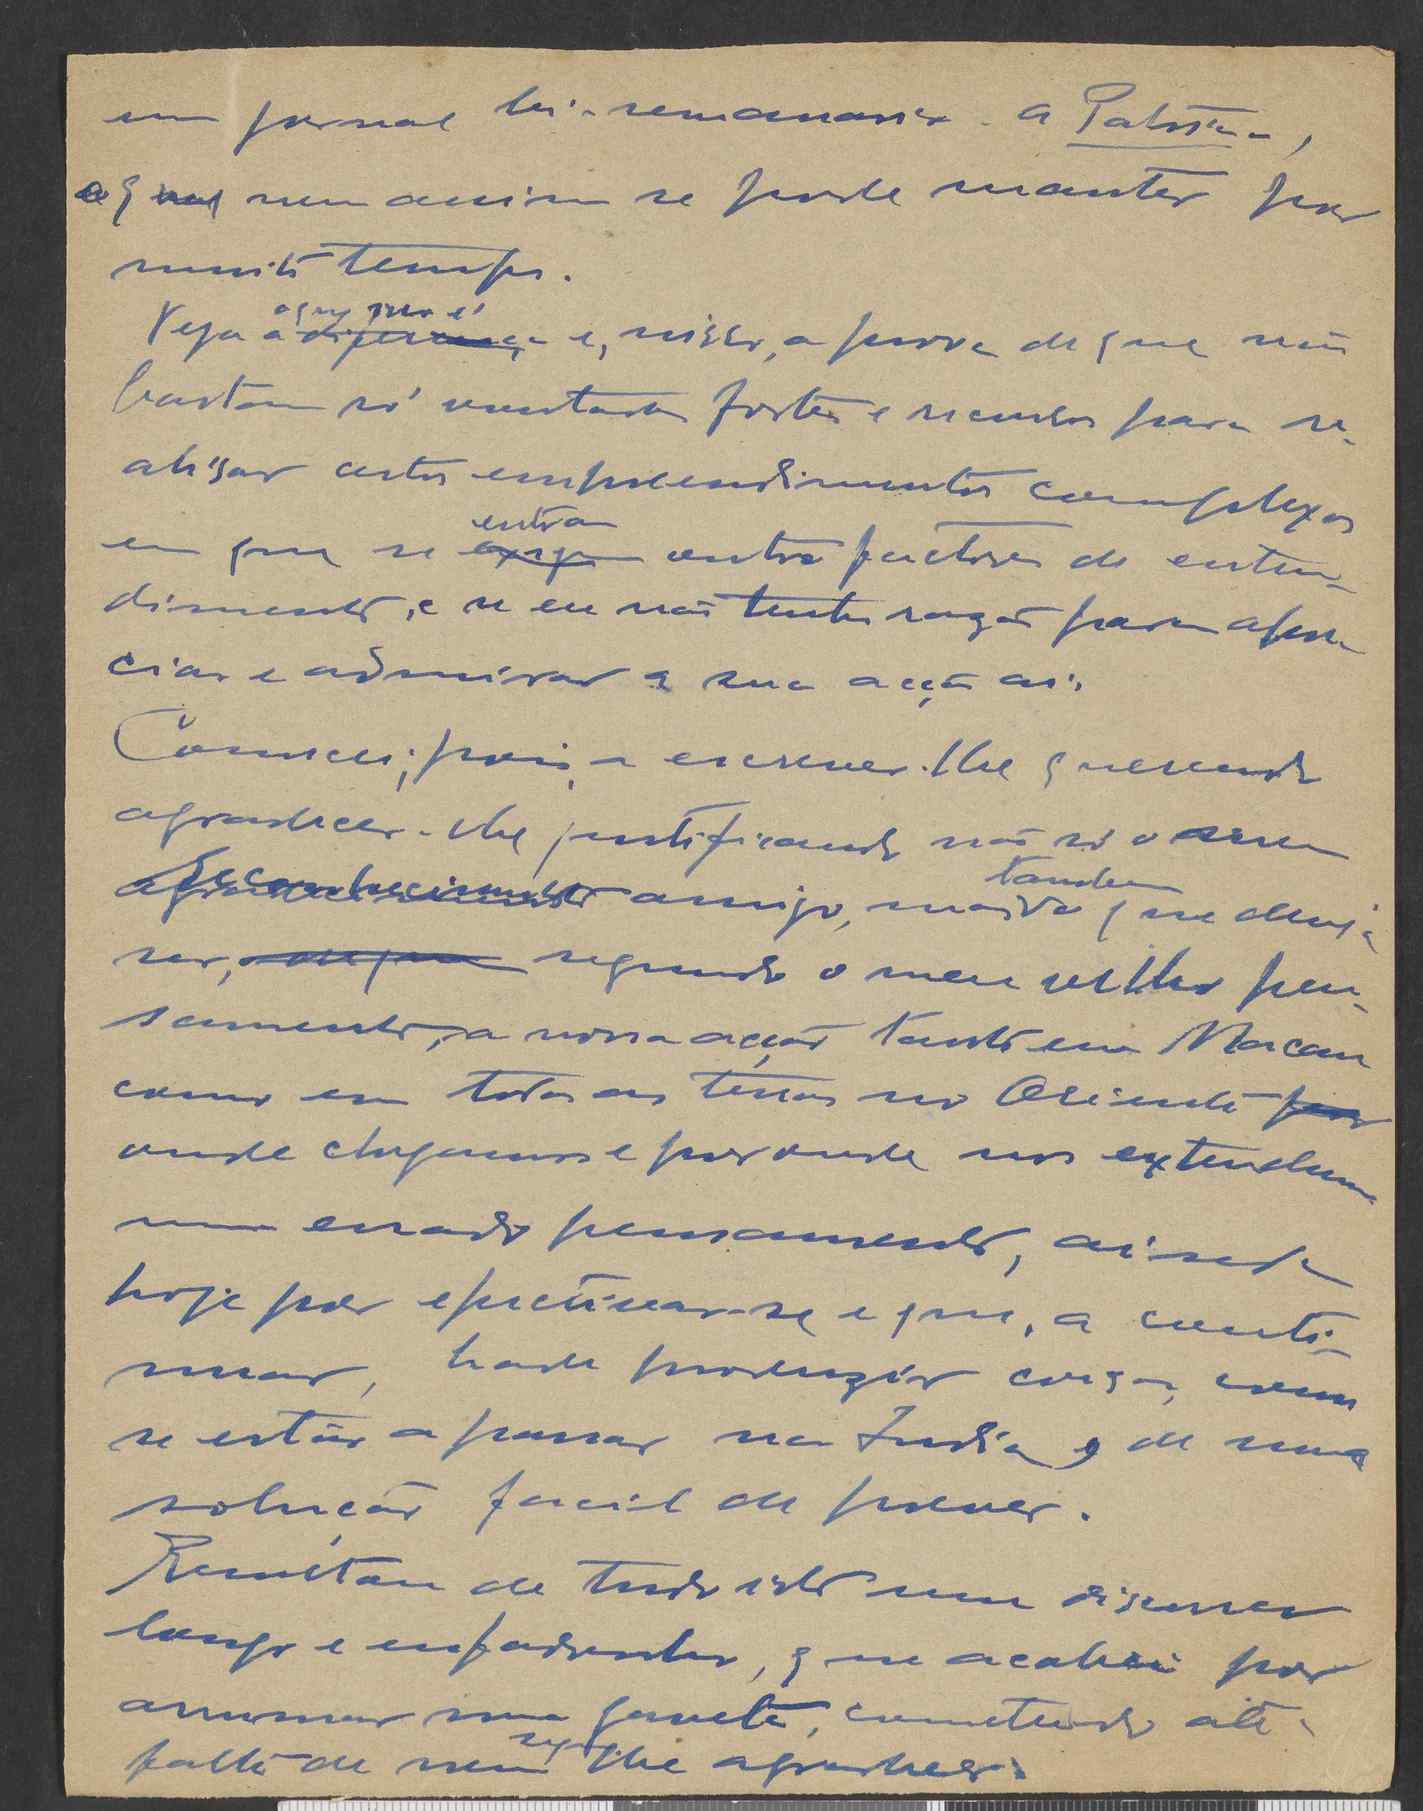 um jornal bi-semanario - a Patria,
a q nem assim se pode manter por
muito tempo.
Veja e, nisso, a prova de que não
bastam só vontades fortes e recursos para re-
alisar certos empreendimentos complexos
em que se entram outros factores de enten-
dimento, e se eu não tenho razão para apre-
ciar e admirar a sua acção aí.
Comecei, pois, a escrever-lhe querendo
agradecer-lhe justificando não só o meu
reconhecimento amigo, mas o que tambem deveja
ser, segundo o meu velho pen-
samento, a nossa acção tanto em Macau
como em todas as terras no Oriente por
onde chegamos e por onde nos extendemos
num errado pensamento, ainda
hoje por efectivar-se e que, a conti-
nuar, hade produzir coisas, como
se estão a passar na India e de uma
solução facil de prever.
Resultou de tudo isto um discurso
longo e enfadonho, que acabei por
arrumar numa gaveta, cometendo até a
falta de nem sequer lhe agradecer.